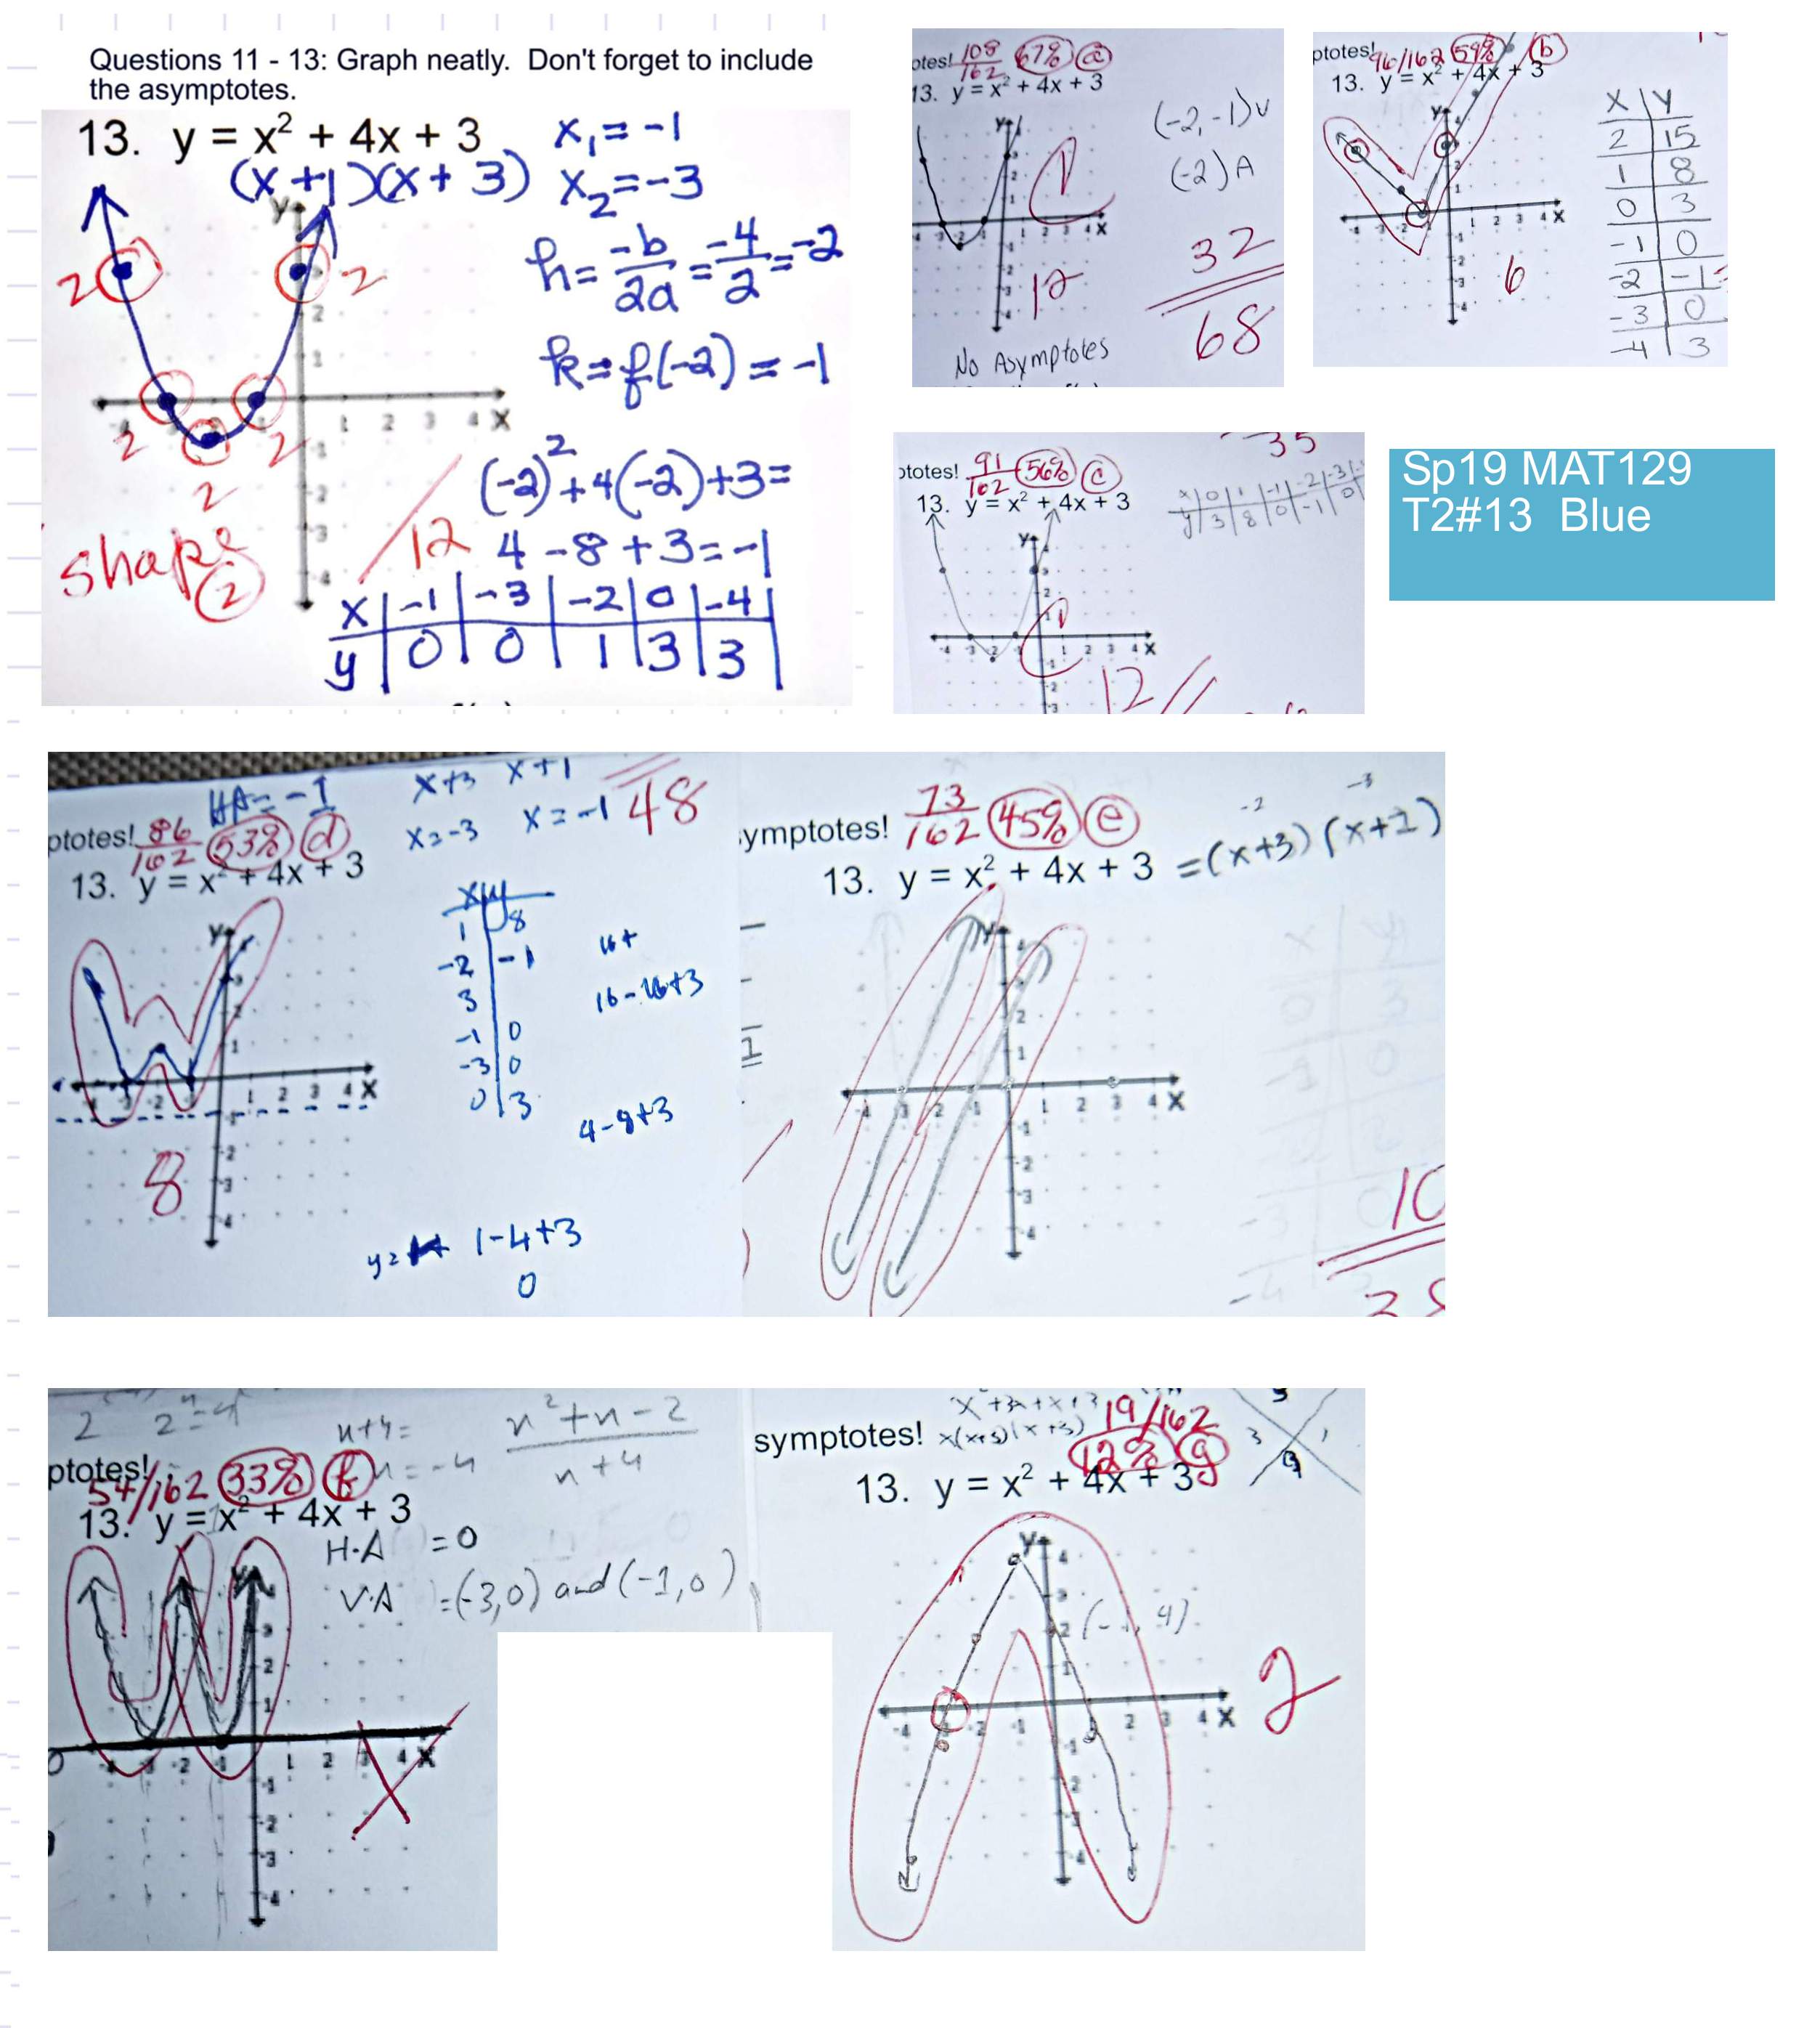 Questions 11 - 13: Graph neatly. Don't forget to include
the asymptotes.
13. y = x² + 4x + 3
x₁ = -1
(x+1)(x+3)
x₂ = -3
h = -b/2a = -4/2 = -2
k = f(-2) = -1
(-2)² + 4(-2) + 3 =
4 - 8 + 3 = -1
2 2 2 2 2
shape 2
12
x | -1 | -3 | -2 | 0 | -4
y | 0 | 0 | 1 | 3 | 3
y
1 2 3 4 X
otes! 108/162 67% a
13. y = x² + 4x + 3
(-2,-1)V
(-2) A
12
32
68
No Asymptotes
ptotes! 96/162 59% b
13. y = x² + 4x + 3
X | Y
2 | 15
1 | 8
0 | 3
-1 | 0
-2 | -1
-3 | 0
-4 | 3
6
35
ptotes! 91/162 56% c
13. y = x² + 4x + 3
x | 0 | 1 | -1 | -2 | -3
y | 3 | 8 | 0 | -1 | 0
12
Sp19 MAT129
T2#13 Blue
HA = -1
x+3 x+1
48
ptotes! 86/162 53% d
x=-3 x=-1
13. y = x² + 4x + 3
x | y
1 | 8
-2 | -1
3
-1 | 0
-3 | 0
0 | 3
16+
16-16+3
4-8+3
8
y= 1-4+3
0
ymptotes! 73/162 45% e
13. y = x² + 4x + 3 = (x+3)(x+1)
-2 -3
10
ptotes! 54/162 33% f
n+4=
n=-4
n²+n-2
n+4
13. y = x² + 4x + 3
H.A = 0
V.A = (-3,0) and (-1,0)
symptotes! 19/162
12% g
13. y = x² + 4x + 3
3 1
2